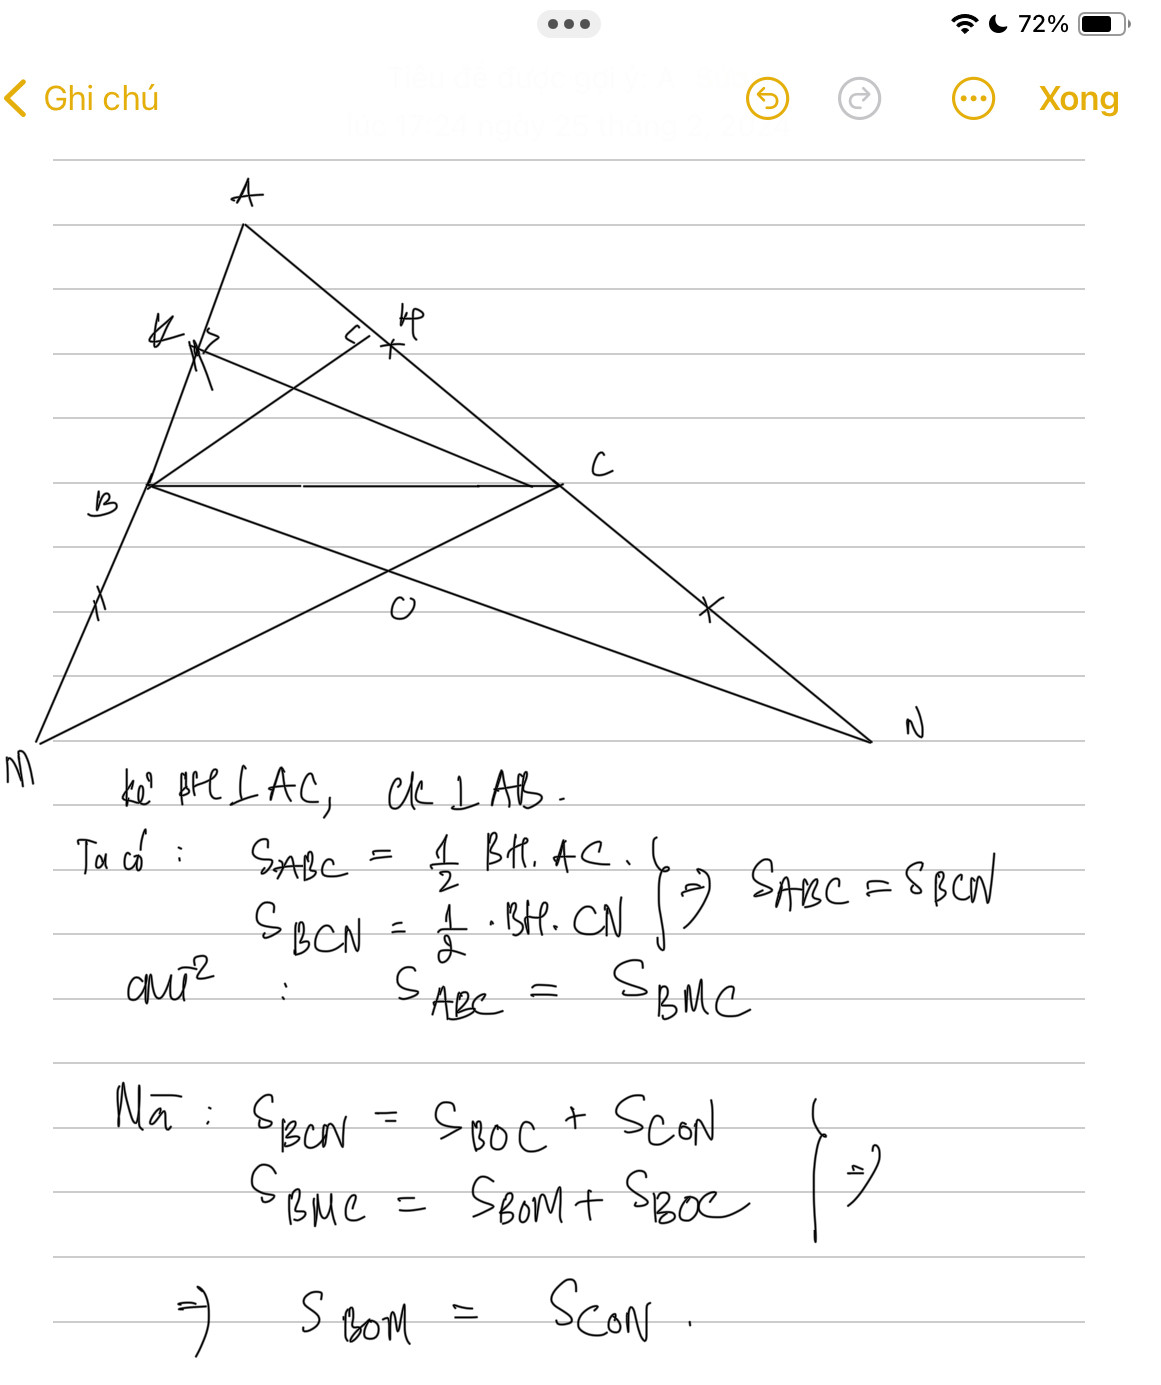 72%
Ghi chú
Xong
A
K
H
B
C
O
M
N
kẻ BH ⊥ AC, CK ⊥ AB.
Ta có : S_ABC = 1/2 BH. AC. } ⇒ S_ABC = S_BCN
S_BCN = 1/2 . BH. CN
: S_ABC = S_BMC
Mà : S_BCN = S_BOC + S_CON } ⇒
S_BMC = S_BOM + S_BOC
⇒ S_BOM = S_CON .